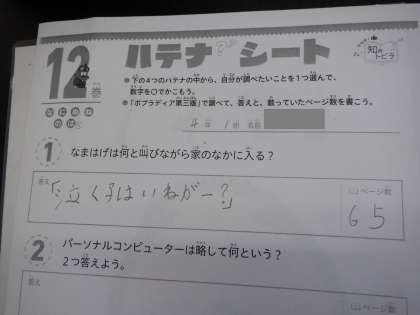 12巻
ハテナ?シート
知のトビラ
なにぬね
のは
● 下の4つのハテナの中から、自分が調べたいことを1つ選んで、
数字を○でかこもう。
● 「ポプラディア第三版」で調べて、答えと、載っていたページ数を書こう。
4年 1組 名前
1 なまはげは何と叫びながら家のなかに入る?
答え 「泣く子はいねがー?」
ページ数
65
2 パーソナルコンピューターは略して何という?
2つ答えよう。
答え
ページ数